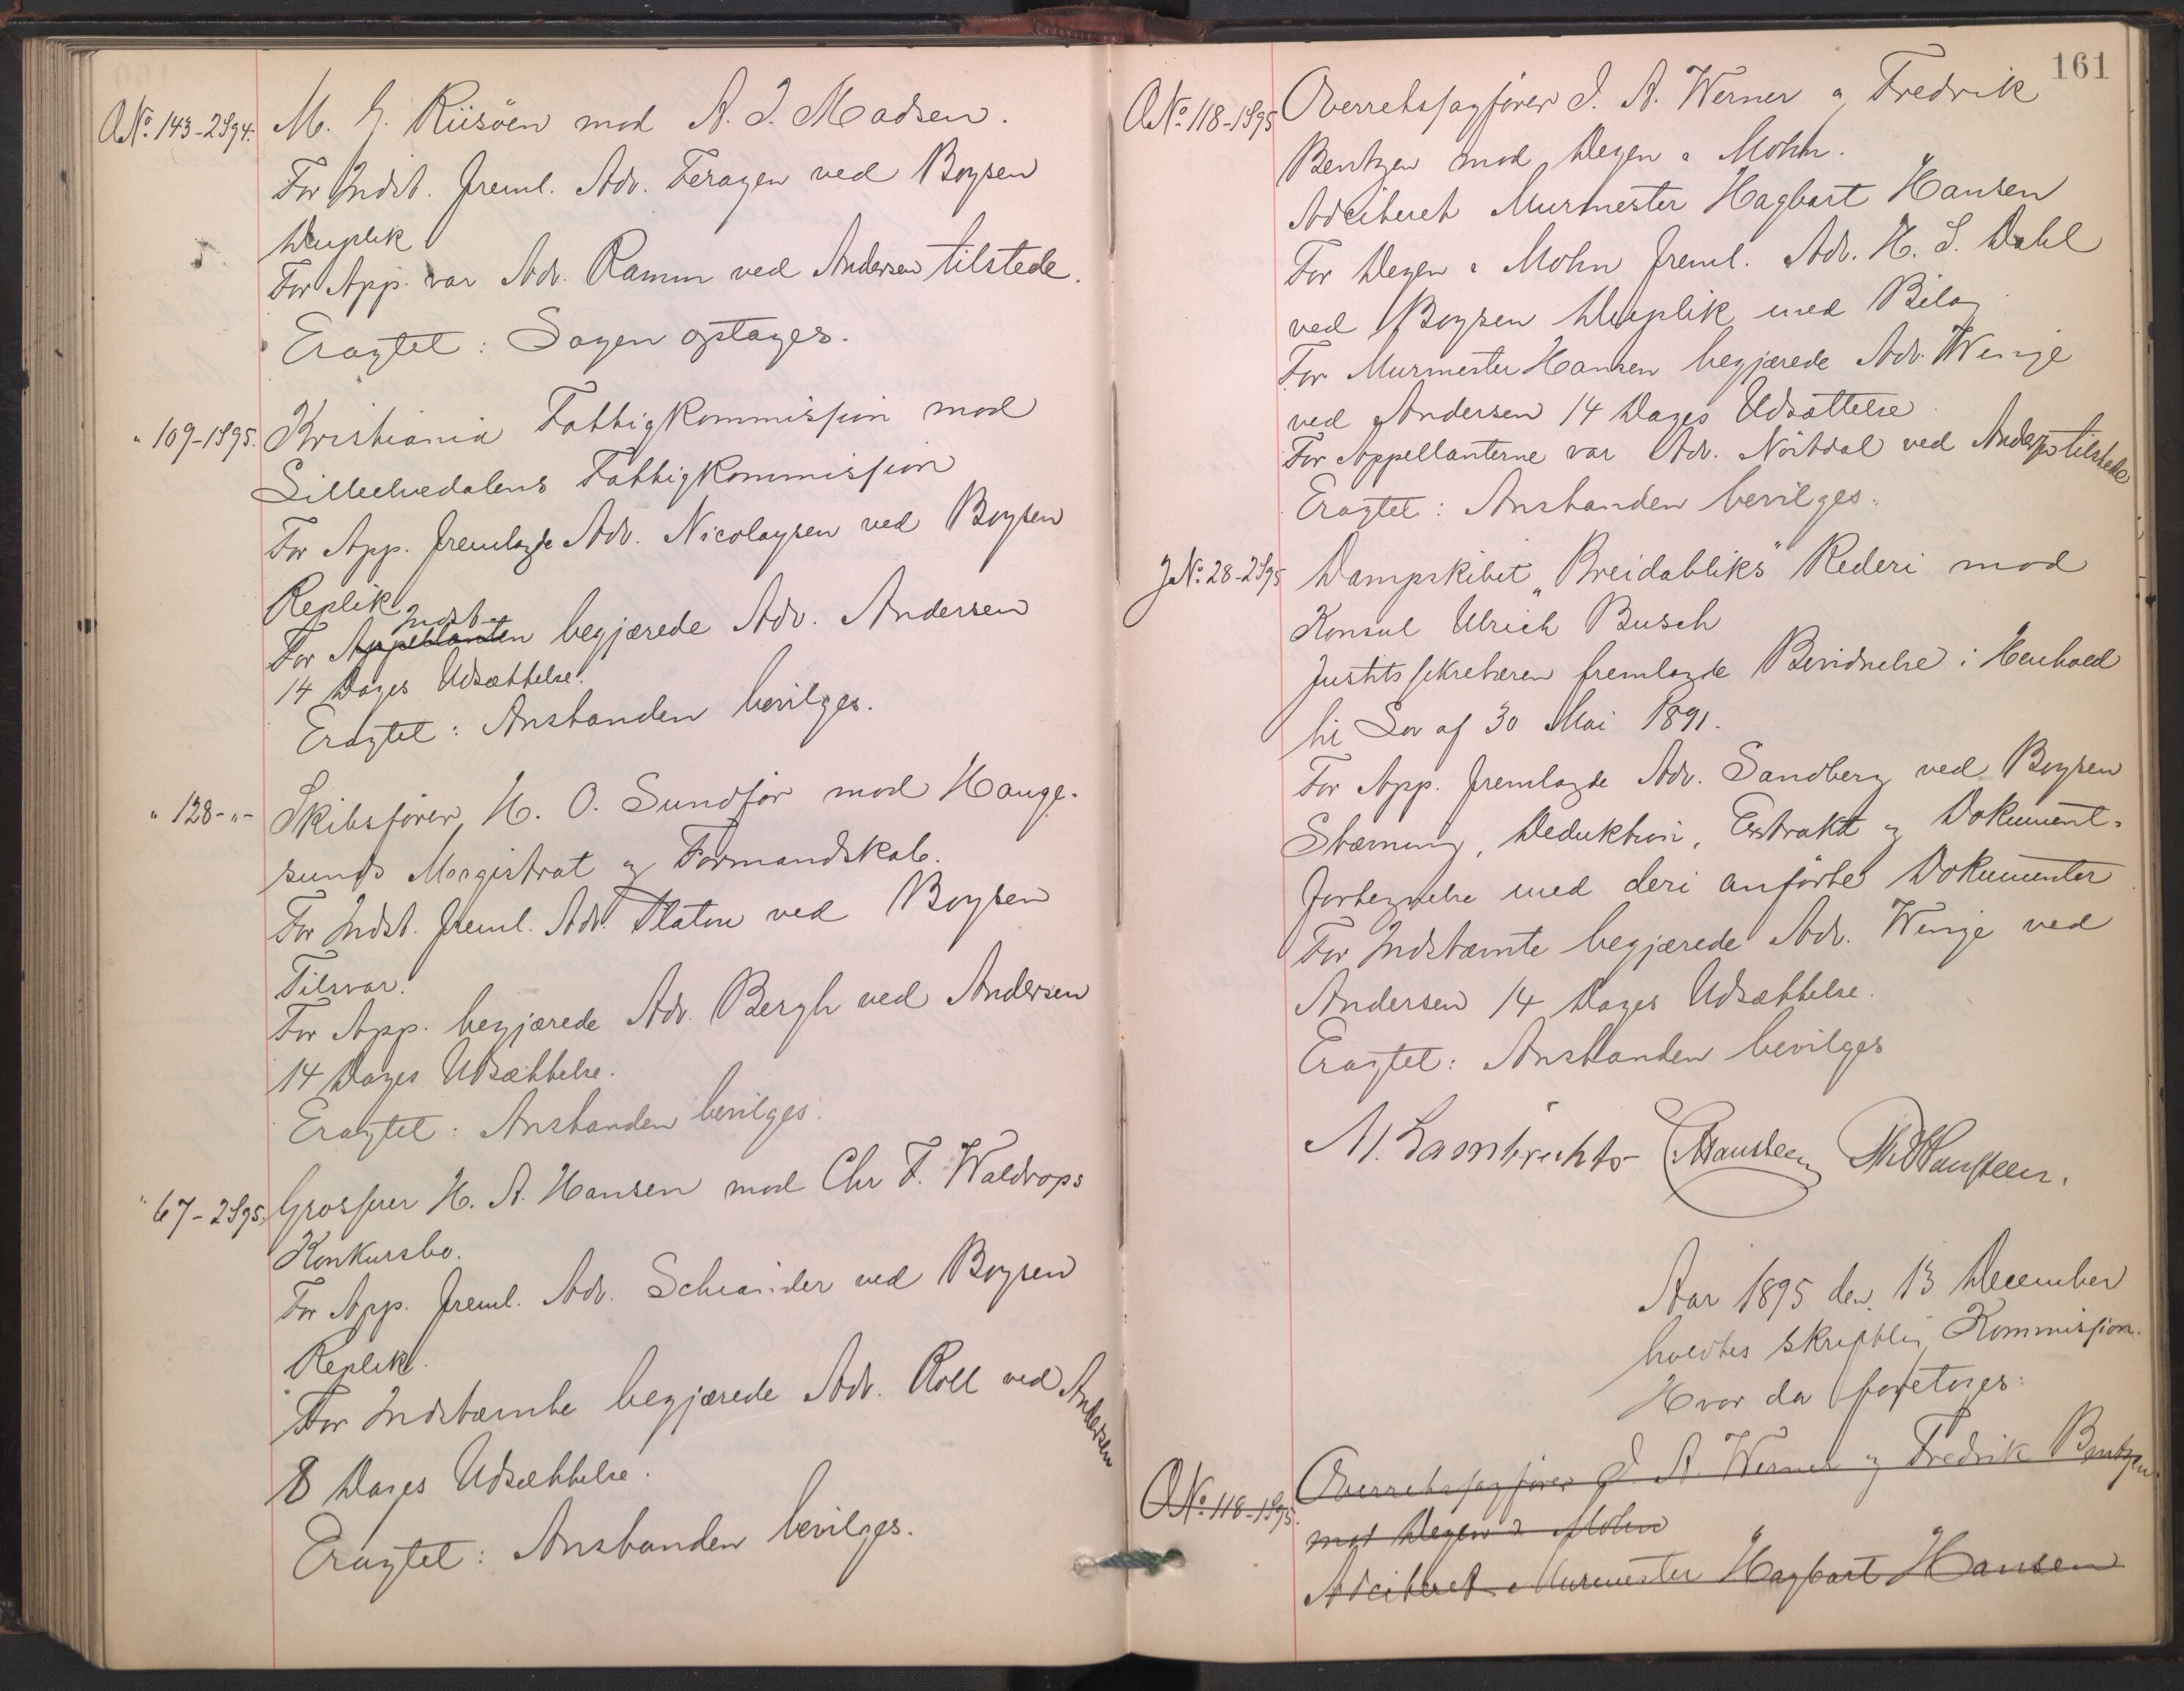 ANo. 143-2S94. M. G. Riisöen mod A. J. Madsen.
For Indst. freml. Adv. Feragen ved Boysen
Duplik
For App. var Adv. Ramm ved Andersen tilstede.
Eragtet: Sagen optages.
" 109-1S95. Kristiania Fattigkommission mod
Lillehvedalens Fattigkommission
For App. fremlagde Adv. Nicolaysen ved Boysen
Replik
Indst
For Appellanten begjærede Adv. Andersen
14 Dages Udsættelse.
Eragtet: Anstanden bevilges.
" 128-"- Skibsfører H. O. Sundfør mod Hauge-
sunds Magistrat og Formandskab.
For Indst. freml. Adv. Platou ved Boysen
Tilsvar.
For App. begjærede Adv. Bergh ved Andersen
14 Dages Udsættelse.
Eragtet: Anstanden bevilges.
" 67-2S95. Grosserer H. A. Hansen mod Chr F. Waldrops
Konkursbo.
For App. freml. Adv. Schiander ved Boysen
Replik.
For Indstæmte begjærede Adv. Roll ved Andersen
8 Dages Udsættelse.
Eragtet: Anstanden bevilges.
161
ANo. 118-1S95 Overretssagfører J. A. Werner og Fredrik
Bentzen mod Degen & Mohn.
Adciteret Murmester Hagbart Hansen
For Degen & Mohn freml. Adv. H. S. Dahl
ved Boysen Duplik med Bilag
For Murmester Hansen begjærede Adv. Winge
ved Andersen 14 Dages Udsættelse
For Appellanterne var Adv. Nörtdal ved Andersen tilstede
Eragtet: Anstanden bevilges.
JNo. 28-2S95 Dampskibet "Breidabliks" Rederi mod
Konsul Ulrich Busch
Justitssekretæren fremlagde Bevidnelse i Henhold
til Lov af 30 Mai 1891.
For App. fremlagde Adv. Sandberg ved Boysen
Stævning, Deduktion, Extrakt og Dokument-
fortegnelse med deri anførte Dokumenter
For Indstæmte begjærede Adv. Winge ved
Andersen 14 Dages Udsættelse.
Eragtet: Anstanden bevilges
M. Lambrechts Hansteen
Aar 1895 den 13 December
holdtes skriftlig Kommission.
Hvor da foretoges:
ANo. 118-1S95. Overretssagfører J. A. Werner og Fredrik Bentzen
mod Degen & Mohn
Adciteret Murmester Hagbart Hansen